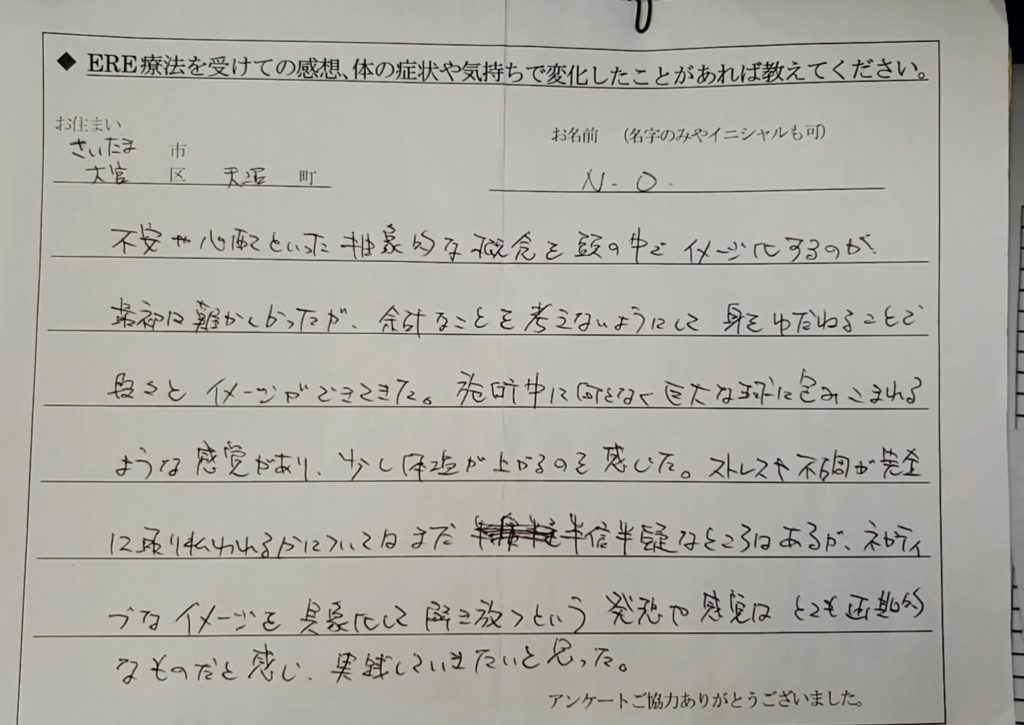 ◆ ERE療法を受けての感想、体の症状や気持ちで変化したことがあれば教えてください。
お住まい
お名前 (名字のみやイニシャルも可)
さいたま 市
大宮 区 天沼 町
N.O.
不安や心配といった抽象的な概念を頭の中でイメージ化するのが
最初は難かしかったが、余計なことを考えないようにして身をゆだねることで
段々とイメージができてきた。施術中は何となく巨大な球に包みこまれる
ような感覚があり、少し体温が上がるのを感じた。ストレスや不調が完全
に取り払われるかについてはまだ半信半疑なところはあるが、ネガティ
ブなイメージを具象化して解き放つという発想や感覚はとても画期的
なものだと感じ、実践していきたいと思った。
アンケートご協力ありがとうございました。